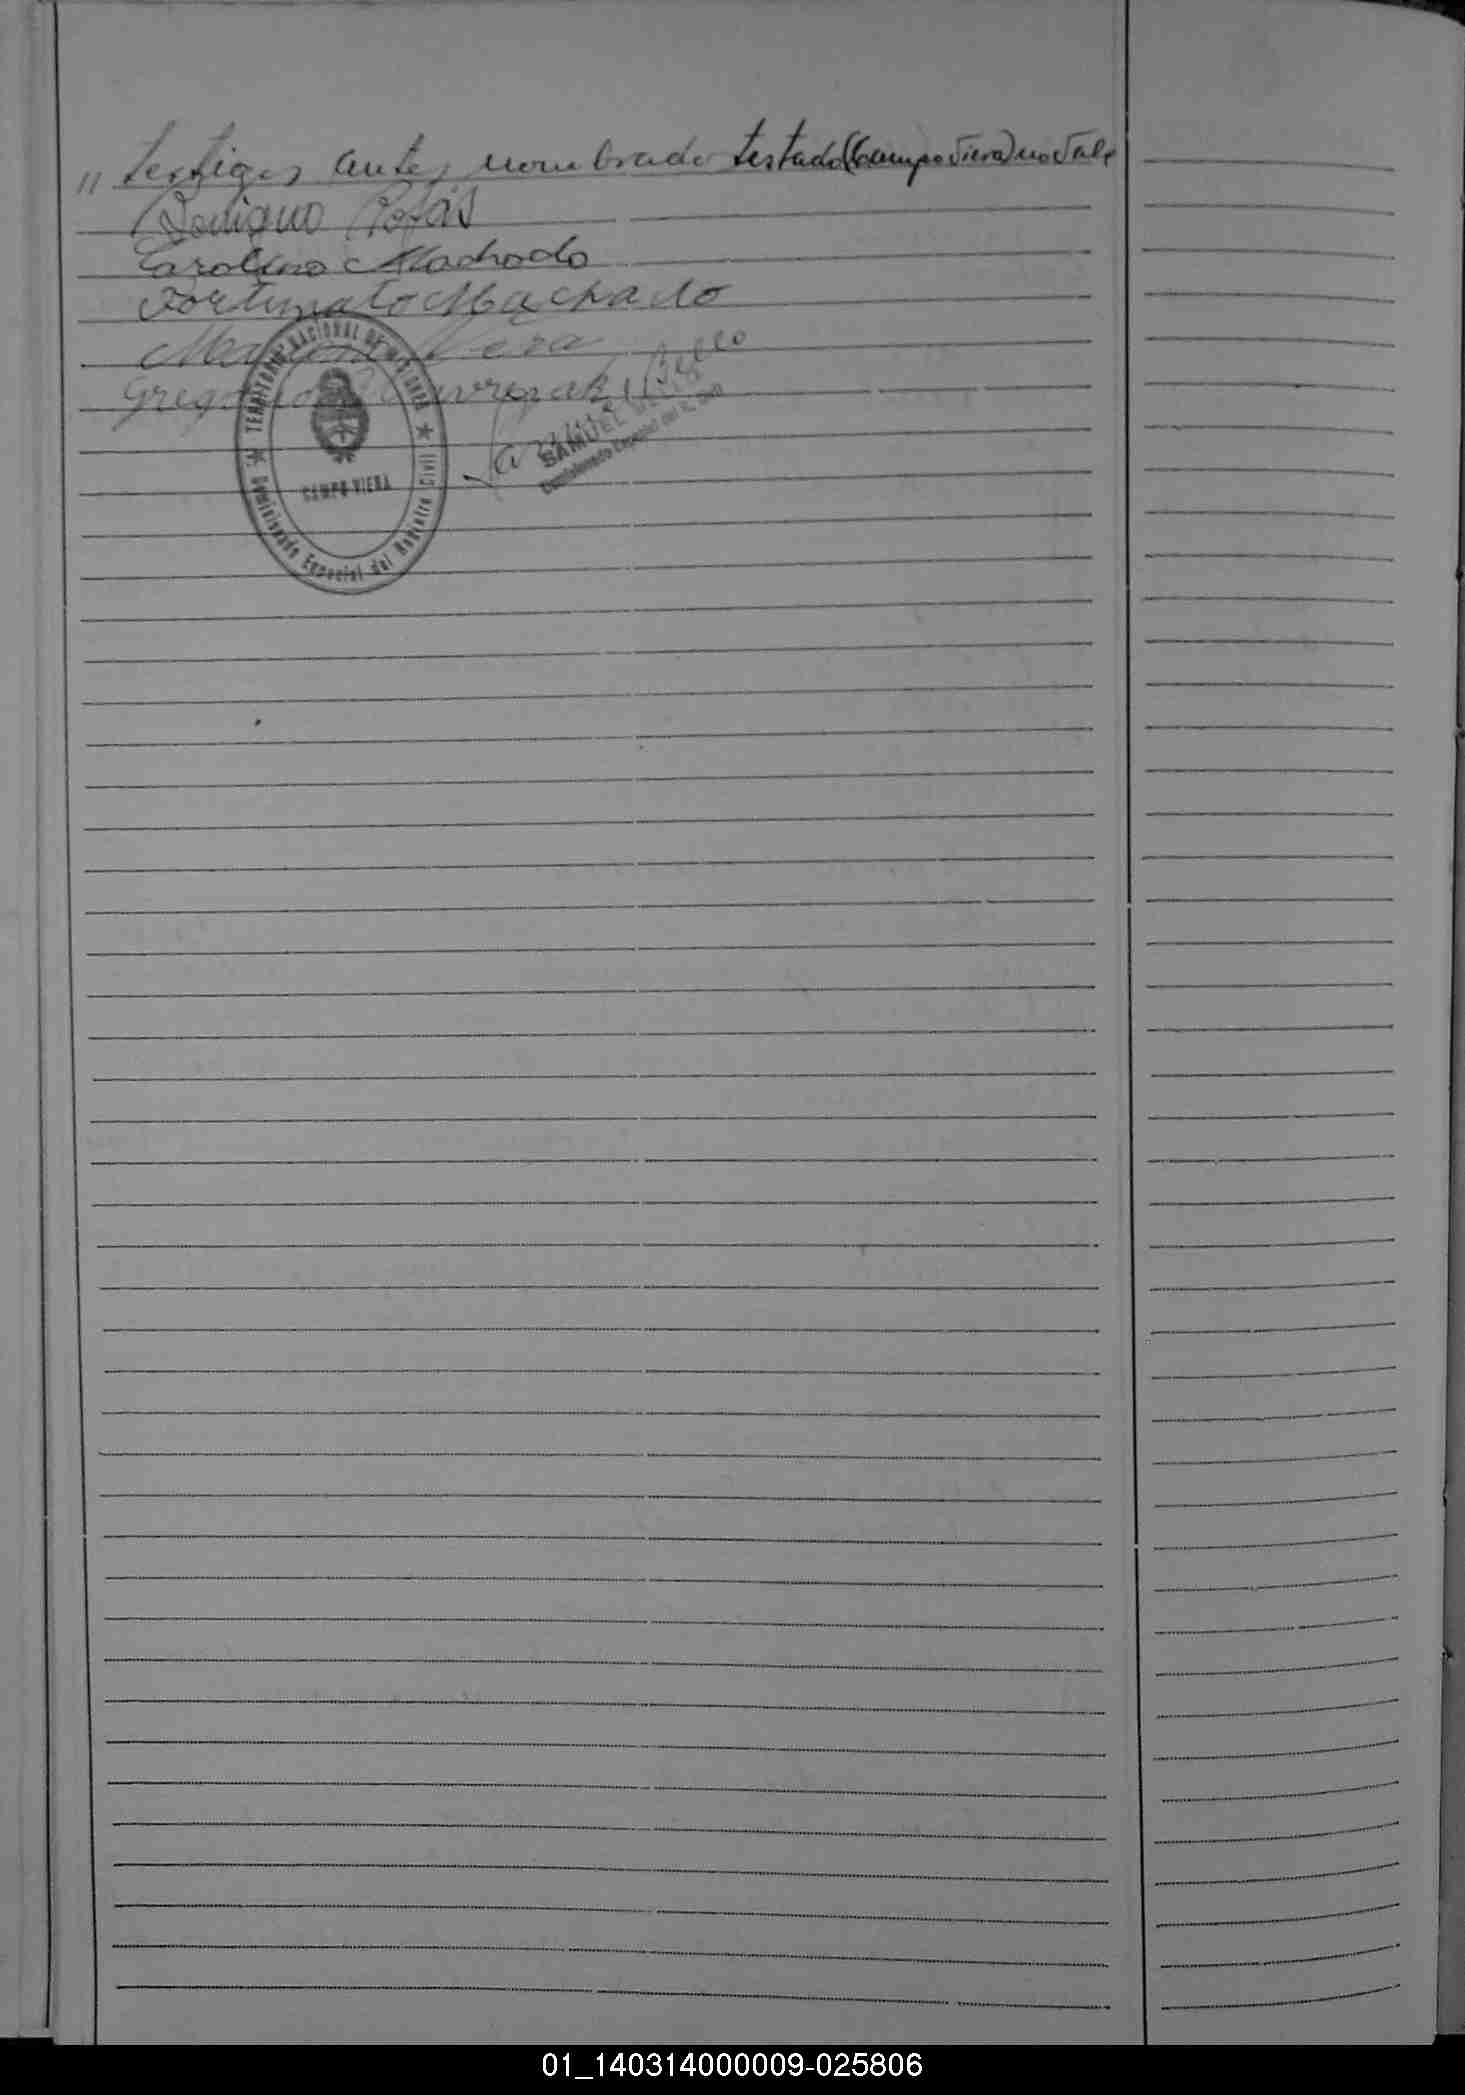 " testigos antes nombrado testado (Campo Viera) no vale
Rojas
Carolino Machado
Fortunato Machado
Vera
TERRITORIO NACIONAL DE MISIONES
CAMPO VIERA
Comisionado Especial del Registro Civil
SAMUEL
Comisionado Especial del R. Civil
01_140314000009-025806